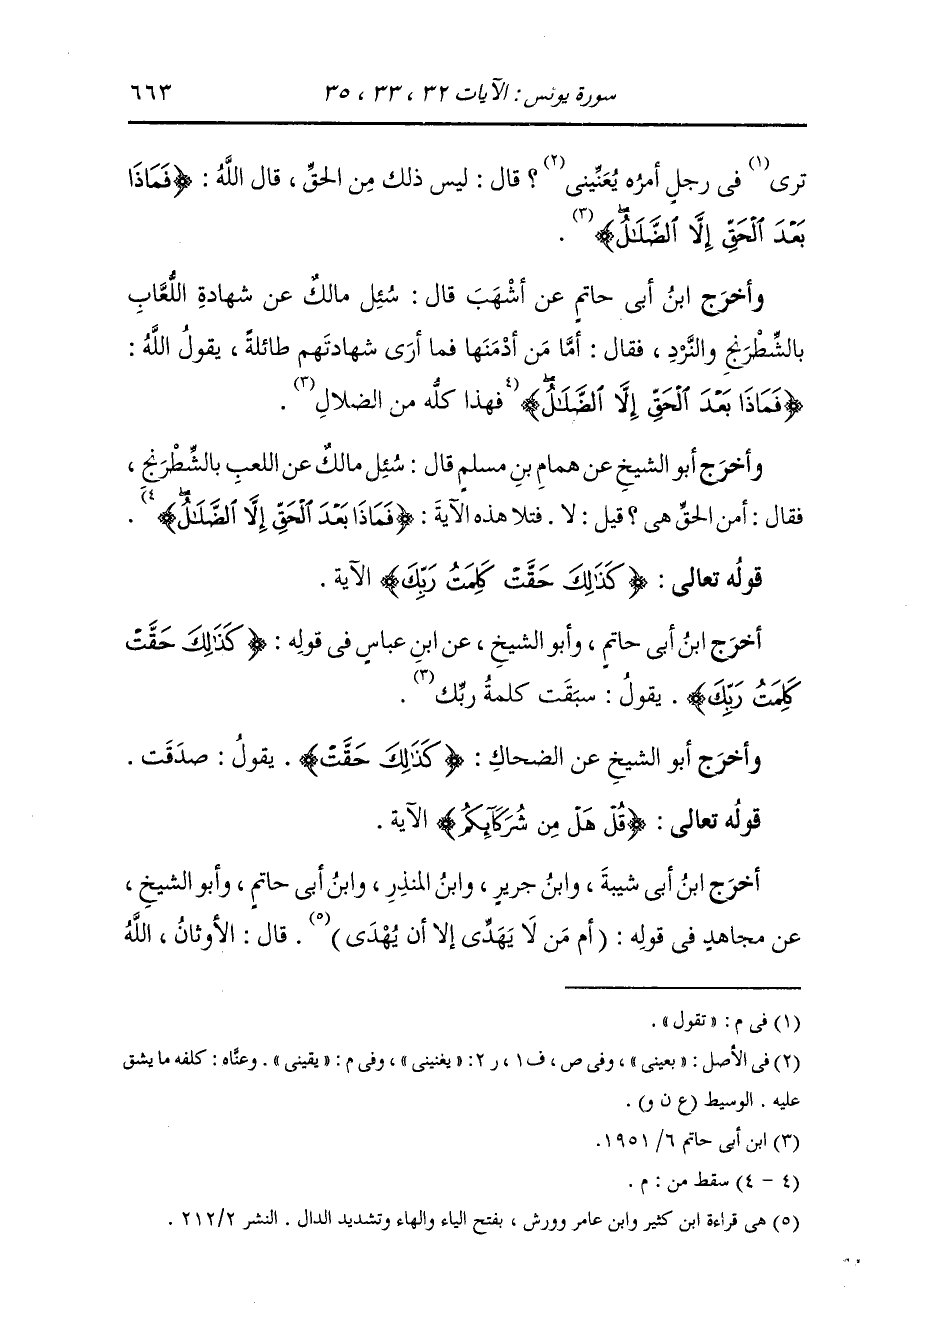 سورة يونس : الآيات ٣٢ ، ٣٣ ، ٣٥ ٦٦٣
ترى(١) فى رجلٍ أمرُه يُعَنِّينى(٢) ؟ قال : ليس ذلك مِن الحقِّ ، قال اللَّهُ : ﴿فَمَاذَا
بَعْدَ ٱلْحَقِّ إِلَّا ٱلضَّلَـٰلُۖ﴾(٣) .
وأخرَج ابنُ أبى حاتمٍ عن أشْهَبَ قال : سُئِل مالكٌ عن شهادةِ اللُّعَّابِ
بالشِّطْرَنجِ والنَّرْدِ ، فقال : أمَّا مَن أدْمَنَها فما أرَى شهادتَهم طائلةً ، يقولُ اللَّهُ :
﴿فَمَاذَا بَعْدَ ٱلْحَقِّ إِلَّا ٱلضَّلَـٰلُۖ﴾(٤) فهذا كلُّه من الضلالِ(٣) .
وأخرَج أبو الشيخِ عن همامِ بنِ مسلمٍ قال : سُئِل مالكٌ عن اللعبِ بالشِّطْرَنجِ ،
فقال : أمن الحقِّ هى ؟ قيل : لا . فتلا هذه الآيةَ : ﴿فَمَاذَا بَعْدَ ٱلْحَقِّ إِلَّا ٱلضَّلَـٰلُۖ﴾٤) .
قولُه تعالى : ﴿كَذَٰلِكَ حَقَّتْ كَلِمَتُ رَبِّكَ﴾ الآية .
أخرَج ابنُ أبى حاتمٍ ، وأبو الشيخِ ، عن ابنِ عباسٍ فى قولِه : ﴿كَذَٰلِكَ حَقَّتْ
كَلِمَتُ رَبِّكَ﴾ . يقولُ : سبَقَت كلمةُ ربِّك(٣) .
وأخرَج أبو الشيخِ عن الضحاكِ : ﴿كَذَٰلِكَ حَقَّتْ﴾ . يقولُ : صدَقَت .
قولُه تعالى : ﴿قُلْ هَلْ مِن شُرَكَآئِكُم﴾ الآية .
أخرَج ابنُ أبى شيبةَ ، وابنُ جريرٍ ، وابنُ المنذرِ ، وابنُ أبى حاتمٍ ، وأبو الشيخِ ،
عن مجاهدٍ فى قولِه : ( أم مَن لَا يَهَدِّى إلا أن يُهْدَى )(٥) . قال : الأوثانُ ، اللَّهُ
(١) فى م : « تقول » .
(٢) فى الأصل : « بعينى » ، وفى ص ، ف ١ ، ر ٢ : « يغنينى » ، وفى م : « يقينى » . وعنَّاه : كلفه ما يشق
عليه . الوسيط (ع ن و) .
(٣) ابن أبى حاتم ٦/ ١٩٥١.
(٤ - ٤) سقط من : م .
(٥) هى قراءة ابن كثير وابن عامر وورش ، بفتح الياء والهاء وتشديد الدال . النشر ٢١٢/٢ .